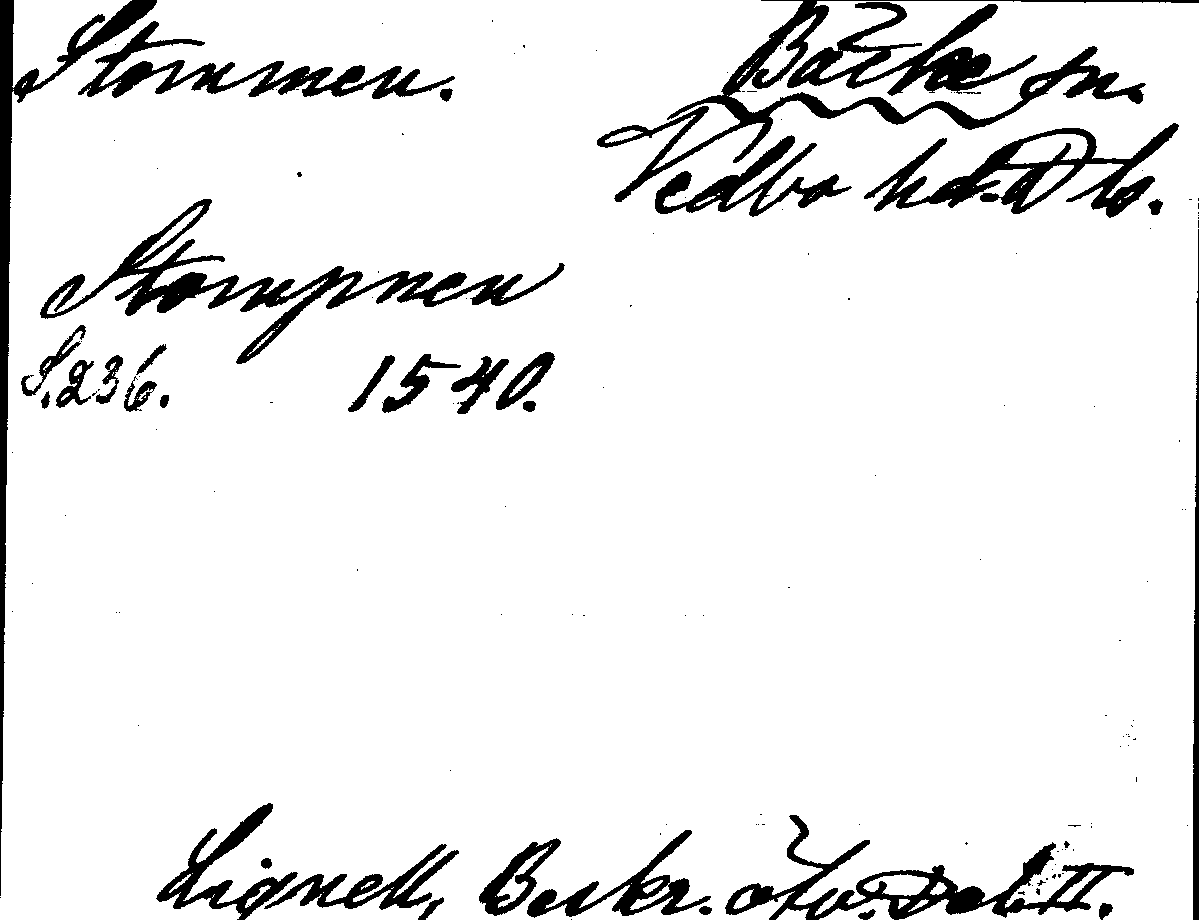 Stommen. Bäcke sn.
Vedbo hd. Dls.
Stompnen
S.236. 1540.
Lignell, Beskr. öfv. Dal. II.